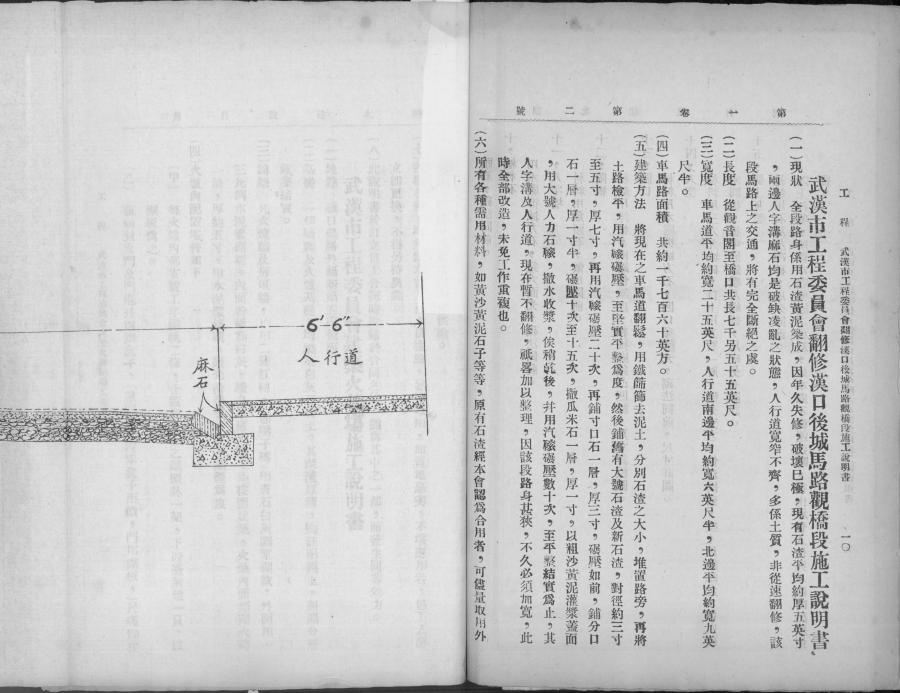 第一卷 第二號
工程 武漢市工程委員會翻修漢口後城馬路觀橋段施工說明書 一〇
武漢市工程委員會翻修漢口後城馬路觀橋段施工說明書、
(一)現狀 全段路身係用石渣黃泥築成，因年久失修，破壞已極，現有石渣平均約厚五英寸
，兩邊人字溝麻石均是破缺凌亂之狀態，人行道寬窄不齊，多係土質，非從速翻修，該
段馬路上之交通，將有完全斷絕之虞。
(二)長度 從觀音閣至橋口共長七千另五十五英尺。
(三)寬度 車馬道平均約寬二十五英尺，人行道南邊平均約寬六英尺半，北邊平均約寬九英
尺半。
(四)車馬路面積 共約一千七百六十英方。
(五)建築方法 將現在之車馬道翻鬆，用鐵篩篩去泥土，分別石渣之大小，堆置路旁，再將
土路檢平，用汽碾碾壓，至堅實平整為度，然後鋪舊有大號石渣及新石渣，對徑約三寸
至五寸，厚七寸，再用汽碾碾壓二十次，再鋪寸口石一層，厚三寸，碾壓如前，鋪分口
石一層，厚一寸半，碾壓十次至十五次，撒瓜米石一層，厚一寸，以粗沙黃泥灌漿蓋面
，用大號人力石碾，撒水收漿，俟稍乾後，幷用汽碾碾壓數十次，至平整結實為止，其
人字溝及人行道，現在暫不翻修，祇畧加以整理，因該段路身甚狹，不久必須加寬，此
時全部改造，未免工作重複也。
(六)所有各種需用材料，如黃沙黃泥石子等等，原有石渣經本會認為合用者，可儘量取用外
6'-6"
人行道
麻石人